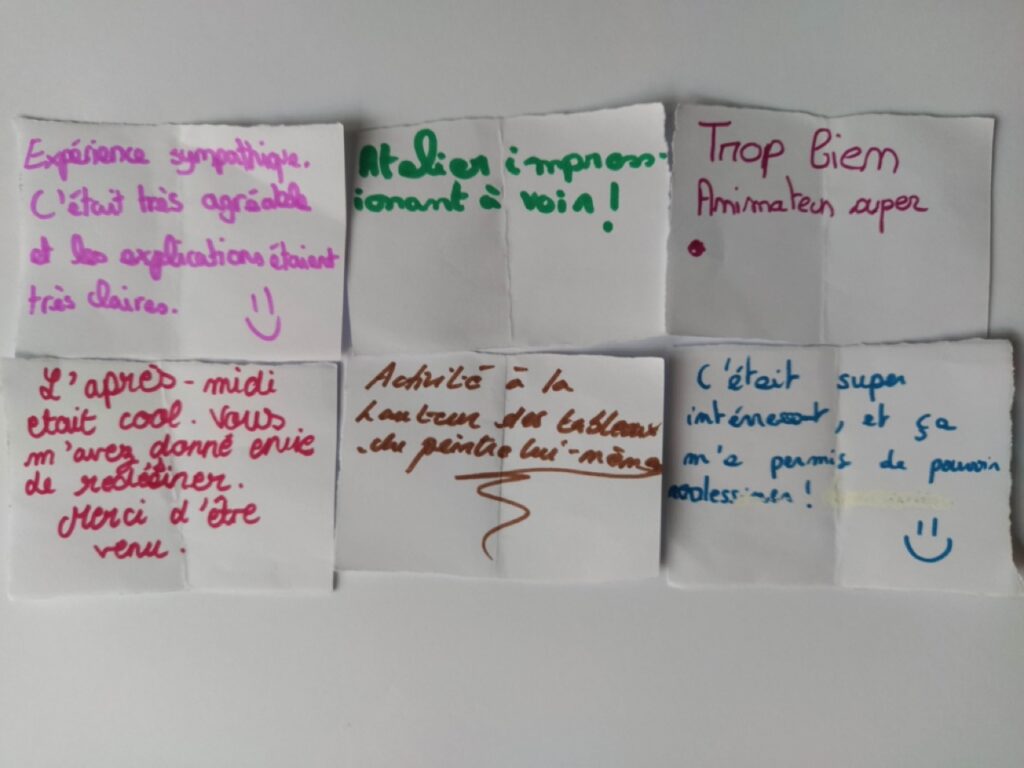 Expérience sympathique.
C'était très agréable
et les explications étaient
très claires.
Atelier impress-
ionant à voir !
Trop bien
Animateur super
L'après-midi
etait cool. Vous
m'avez donné envie
de redessiner.
Merci d'être
venu.
Activité à la
hauteur des tableaux
du peintre lui-même
C'était super
, et ça
m'a permis de pouvoir
redessiner !